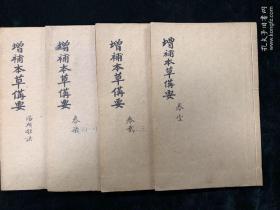 增補本草備要
卷壹
增補本草備要
卷貳 三
增補本草備要
增補本草備要
湯頭歌訣
孔夫子旧书网